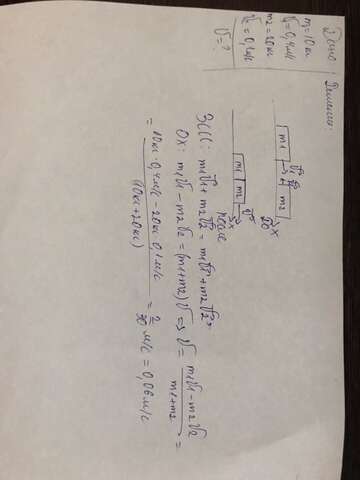 Дано: Решение:
m1 = 10 кг
v1 = 0,4 м/с
m2 = 20 кг
v2 = 0,1 м/с
v = ?
m1 v1 v2 m2
x
до
m1 m2 v
x
после
ЗСИ: m1v1 + m2v2 = m1v + m2v2
OX: m1v1 - m2v2 = (m1+m2)v => v = m1v1 - m2v2 / m1+m2 =
= 10кг · 0,4м/с - 20кг · 0,1м/с / (10кг+20кг) = 2/30 м/с = 0,06 м/с